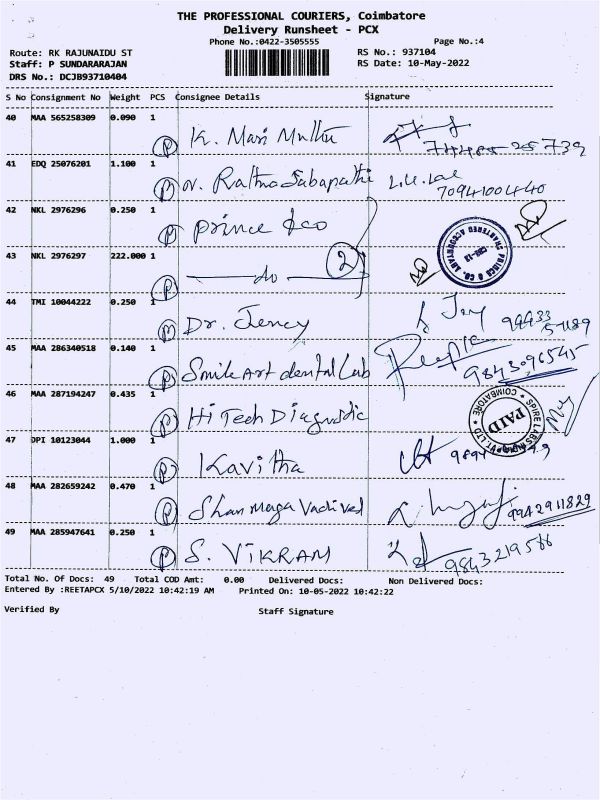 THE PROFESSIONAL COURIERS, Coimbatore
Delivery Runsheet - PCX
Phone No.:0422-3505555 Page No.:4
Route: RK RAJUNAIDU ST RS No.: 937104
Staff: P SUNDARARAJAN RS Date: 10-May-2022
DRS No.: DCJB93710404
S No Consignment No Weight PCS Consignee Details Signature
40 MAA 565258309 0.090 1
P K. Mari Muthu
41 EDQ 25076201 1.100 1
P N. Rathna Sabapathi 7094100440
42 NKL 2976296 0.250 1
P prince &co
43 NKL 2976297 222.000 1
P do 2
PRINCE & CO. CHARTERED ACCOUNTANTS
44 TMI 10044222 0.250 1
P Dr. Jency
45 MAA 286340518 0.140 1
P Smile Art dental Lab Deepika 9843096545
46 MAA 287194247 0.435 1
P Hi Tech Diagnostic
SPIRE LABS PVT LTD COIMBATORE PAID
47 OPI 10123044 1.000 1
P Kavitha
48 MAA 282659242 0.470 1
P Shanmaga Vadivel 9942911829
49 MAA 285947641 0.250 1
P S. VIKRAM
Total No. Of Docs: 49 Total COD Amt: 0.00 Delivered Docs: Non Delivered Docs:
Entered By :REETAPCX 5/10/2022 10:42:19 AM Printed On: 10-05-2022 10:42:22
Verified By Staff Signature